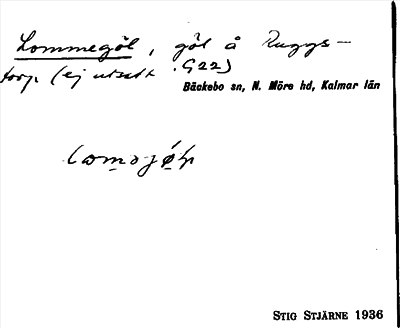 Lommegöl, göl å Ruggs-
torp (ej utsatt. G22)
Bäckebo sn, N. Möre hd, Kalmar län
STIG STJÄRNE 1936